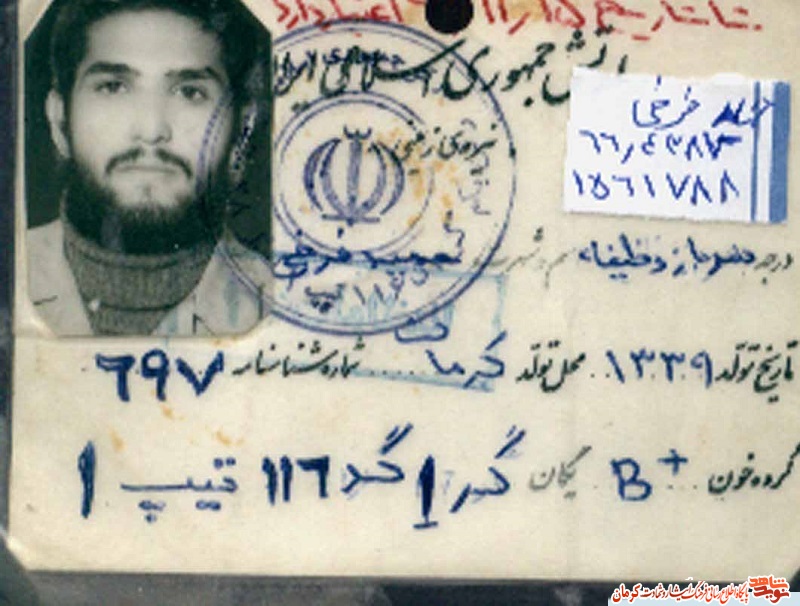 تا تاریخ ۱۵/۱۱ اعتبار دارد
ارتش جمهوری اسلامی ایران
نیروی زمینی
فرخی
۶۶/۴۳۸۱۳
۱۵۶۱۷۸۸
درجه سرباز وظیفه اسم و شهرت حمید فرخی
تاریخ تولد ۱۳۳۹ محل تولد کرمان شماره شناسنامه ۶۹۷
گروه خون B+ یگان گر ۱ گد ۱۱۶ تیپ ۱
پایگاه اطلاع رسانی فرهنگ ایثار و شهادت کرمان